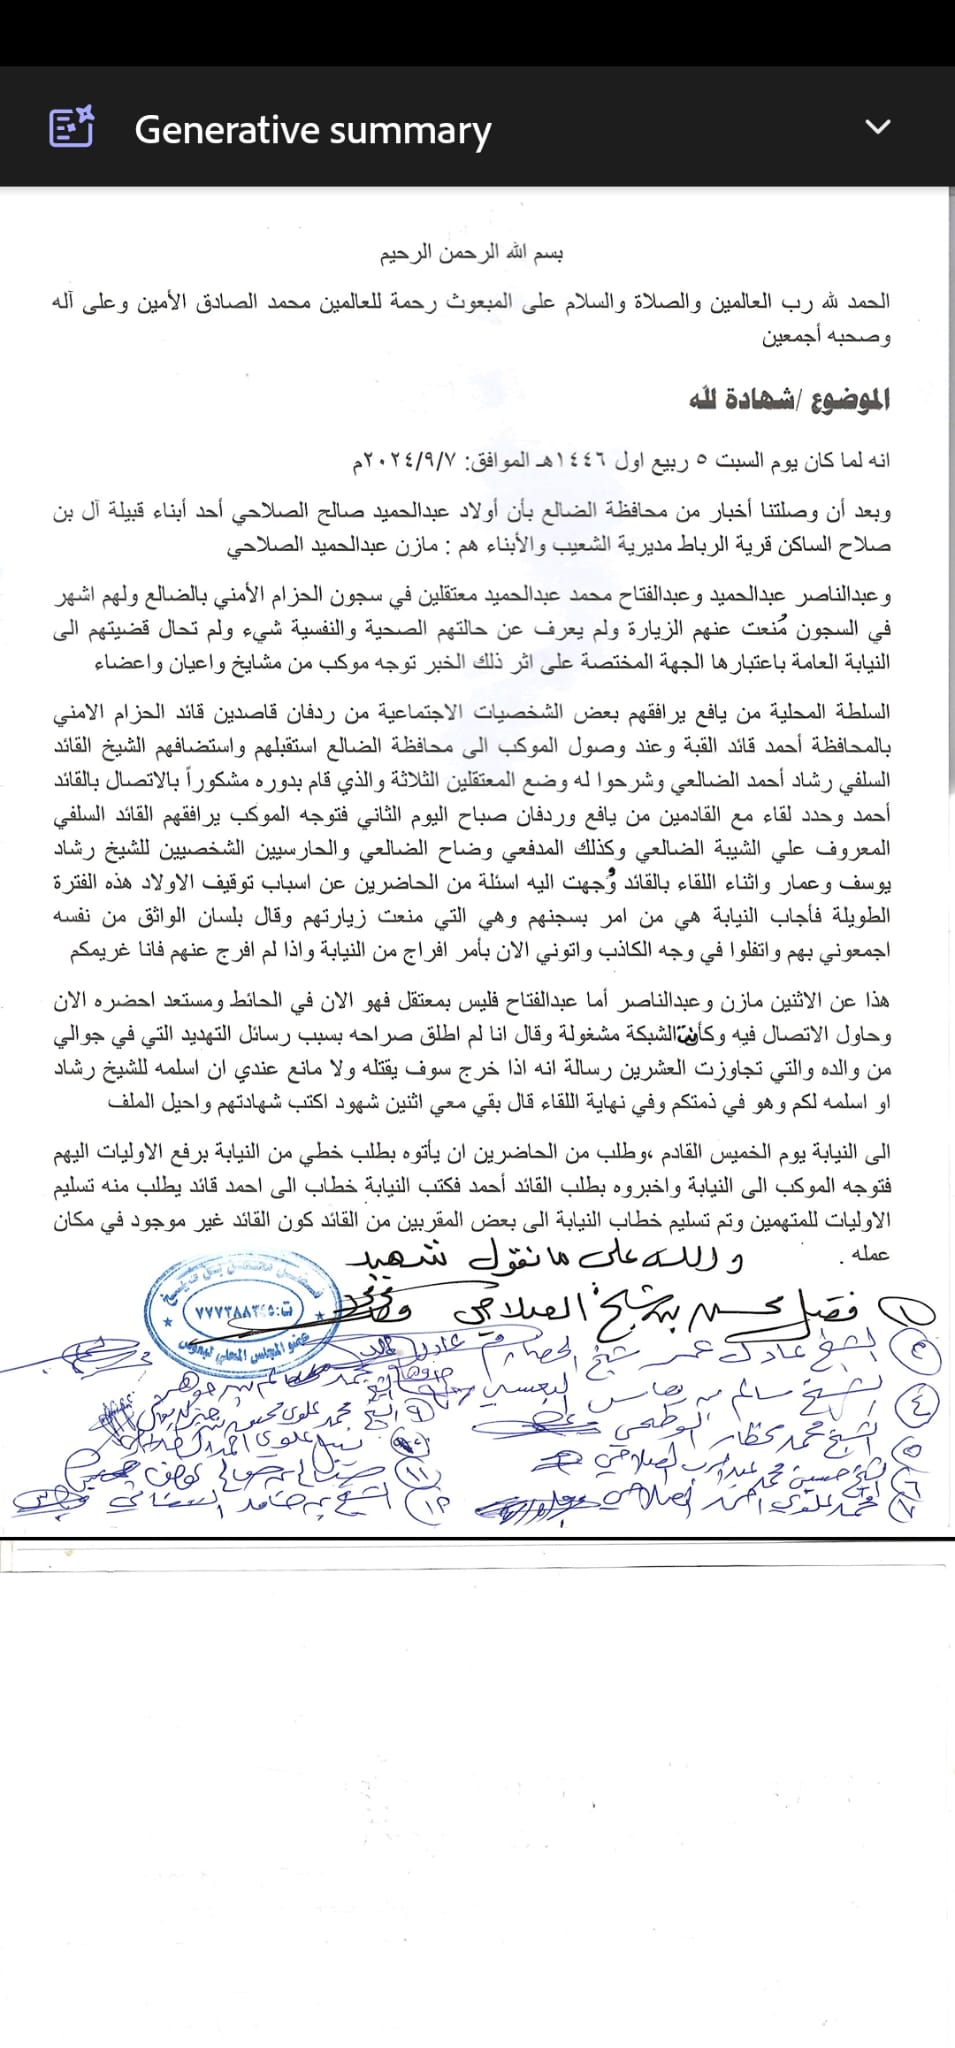 Generative summary
بسم الله الرحمن الرحيم
الحمد لله رب العالمين والصلاة والسلام على المبعوث رحمة للعالمين محمد الصادق الأمين وعلى آله
وصحبه أجمعين
الموضوع /شهادة لله
انه لما كان يوم السبت ٥ ربيع اول ١٤٤٦هـ الموافق: ٢٠٢٤/٩/٧م
وبعد أن وصلتنا أخبار من محافظة الضالع بأن أولاد عبدالحميد صالح الصلاحي أحد أبناء قبيلة آل بن
صلاح الساكن قرية الرباط مديرية الشعيب والأبناء هم : مازن عبدالحميد الصلاحي
وعبدالناصر عبدالحميد وعبدالفتاح محمد عبدالحميد معتقلين في سجون الحزام الأمني بالضالع ولهم اشهر
في السجون مُنعت عنهم الزيارة ولم يعرف عن حالتهم الصحية والنفسية شيء ولم تحال قضيتهم الى
النيابة العامة باعتبارها الجهة المختصة على اثر ذلك الخبر توجه موكب من مشايخ واعيان واعضاء
السلطة المحلية من يافع يرافقهم بعض الشخصيات الاجتماعية من ردفان قاصدين قائد الحزام الامني
بالمحافظة أحمد قائد القبة وعند وصول الموكب الى محافظة الضالع استقبلهم واستضافهم الشيخ القائد
السلفي رشاد أحمد الضالعي وشرحوا له وضع المعتقلين الثلاثة والذي قام بدوره مشكوراً بالاتصال بالقائد
أحمد وحدد لقاء مع القادمين من يافع وردفان صباح اليوم الثاني فتوجه الموكب يرافقهم القائد السلفي
المعروف علي الشيبة الضالعي وكذلك المدفعي وضاح الضالعي والحارسيين الشخصيين للشيخ رشاد
يوسف وعمار واثناء اللقاء بالقائد وُجهت اليه اسئلة من الحاضرين عن اسباب توقيف الاولاد هذه الفترة
الطويلة فأجاب النيابة هي من امر بسجنهم وهي التي منعت زيارتهم وقال بلسان الواثق من نفسه
اجمعوني بهم واتفلوا في وجه الكاذب واتوني الان بأمر افراج من النيابة واذا لم افرج عنهم فانا غريمكم
هذا عن الاثنين مازن وعبدالناصر أما عبدالفتاح فليس بمعتقل فهو الان في الحائط ومستعد احضره الان
وحاول الاتصال فيه وكأنت الشبكة مشغولة وقال انا لم اطلق صراحه بسبب رسائل التهديد التي في جوالي
من والده والتي تجاوزت العشرين رسالة انه اذا خرج سوف يقتله ولا مانع عندي ان اسلمه للشيخ رشاد
او اسلمه لكم وهو في ذمتكم وفي نهاية اللقاء قال بقي معي اثنين شهود اكتب شهادتهم واحيل الملف
الى النيابة يوم الخميس القادم ،وطلب من الحاضرين ان يأتوه بطلب خطي من النيابة برفع الاوليات اليهم
فتوجه الموكب الى النيابة واخبروه بطلب القائد أحمد فكتب النيابة خطاب الى احمد قائد يطلب منه تسليم
الاوليات للمتهمين وتم تسليم خطاب النيابة الى بعض المقربين من القائد كون القائد غير موجود في مكان
عمله .
والله على ما نقول شهيد
١) فضل محسن بن شيخ الصلاحي
الشيخ عادل عمر شيخ
٤) الشيخ سالم بن
٥) الشيخ محمد
٦) الشيخ حسين محمد عبدالرب الصلاحي
٧) محمد علوي احمد الصلاحي
٩) الشيخ محمد علوي محسن
نبيل علوي احمد
١١) صالح
١٢) الشيخ بن حامد